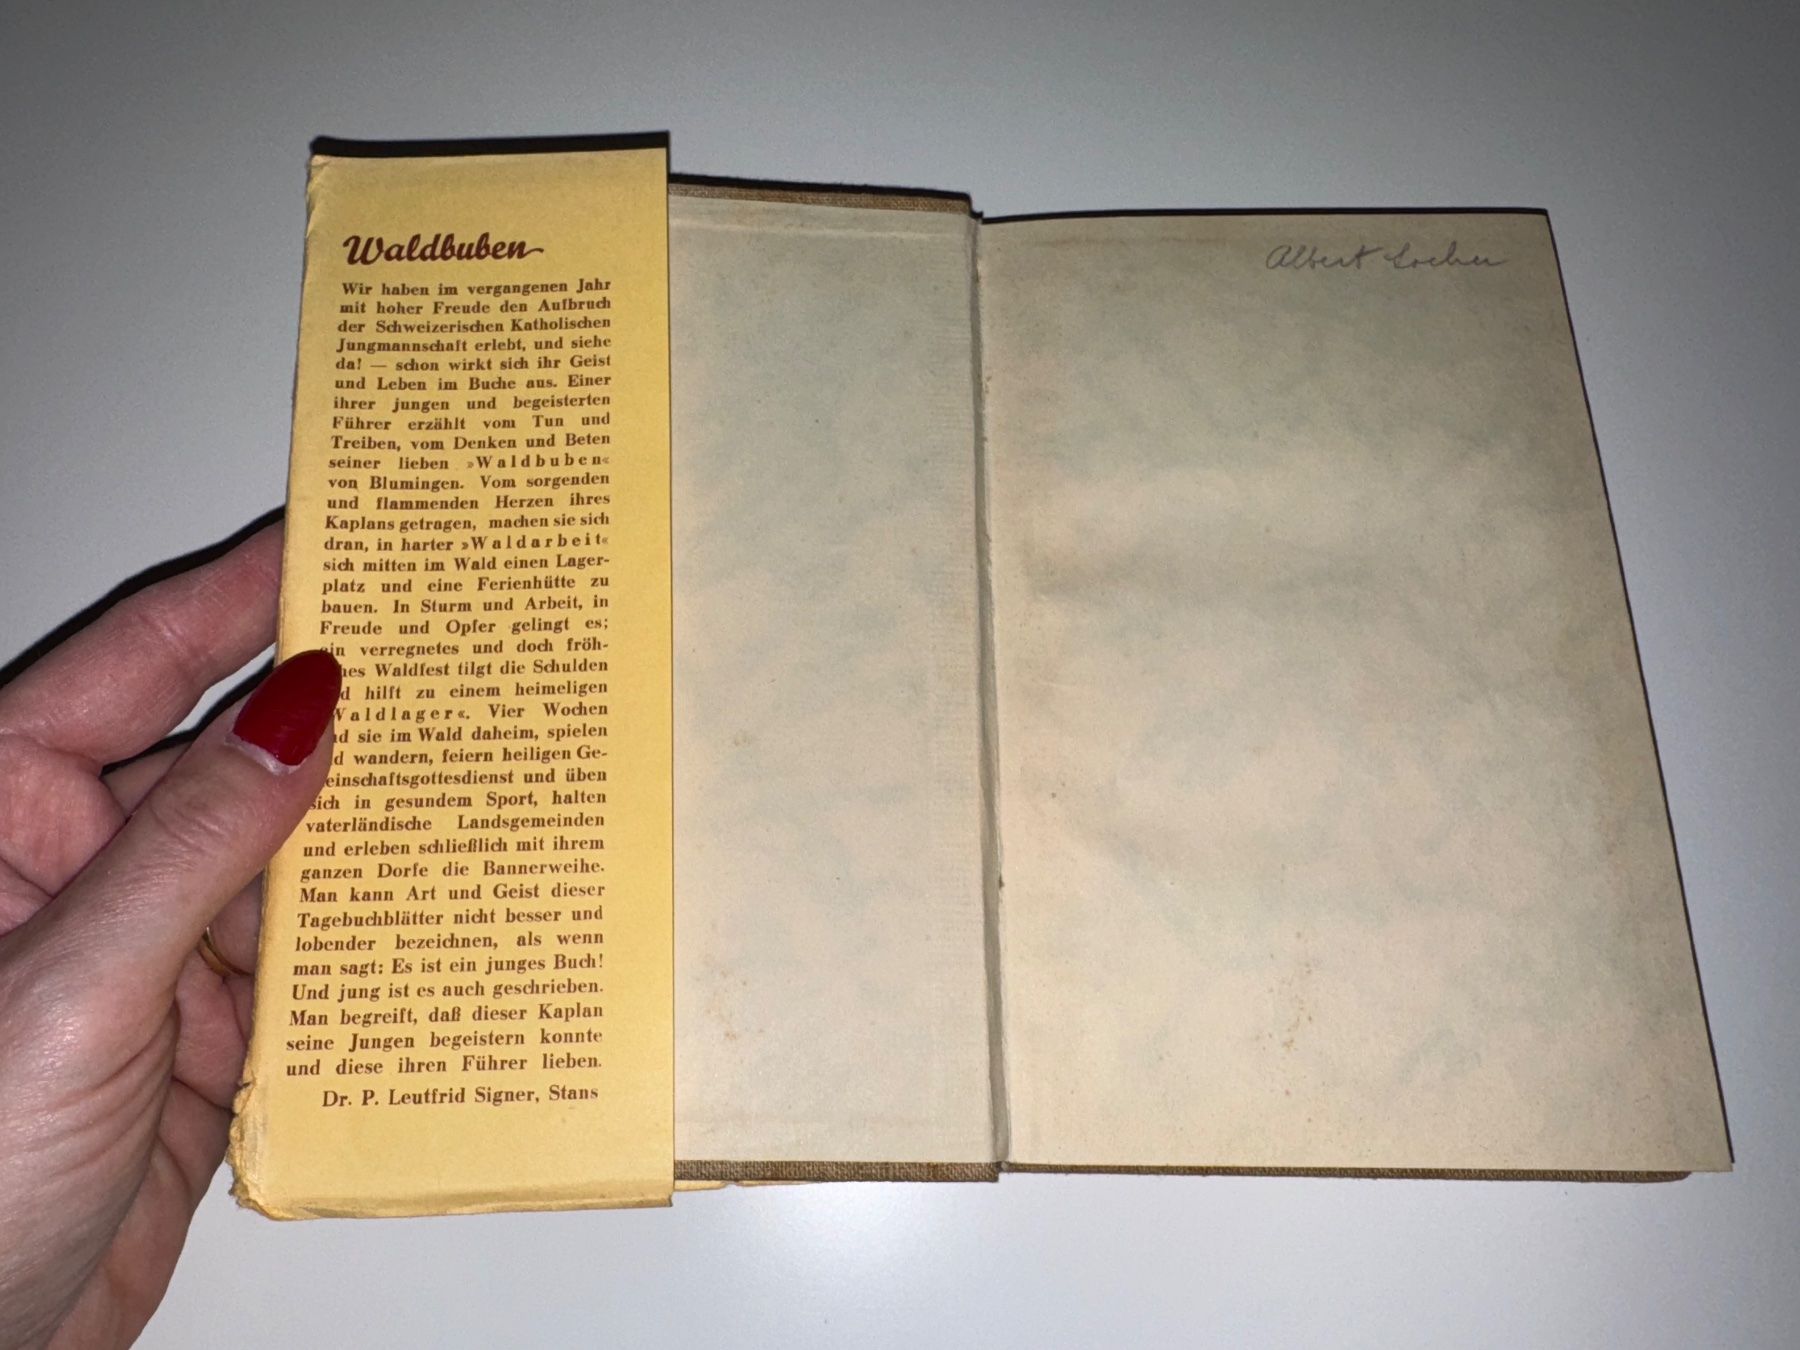 Waldbuben
Wir haben im vergangenen Jahr
mit hoher Freude den Aufbruch
der Schweizerischen Katholischen
Jungmannschaft erlebt, und siehe
da! — schon wirkt sich ihr Geist
und Leben im Buche aus. Einer
ihrer jungen und begeisterten
Führer erzählt vom Tun und
Treiben, vom Denken und Beten
seiner lieben »Waldbuben«
von Blumingen. Vom sorgenden
und flammenden Herzen ihres
Kaplans getragen, machen sie sich
dran, in harter »Waldarbeit«
sich mitten im Wald einen Lager-
platz und eine Ferienhütte zu
bauen. In Sturm und Arbeit, in
Freude und Opfer gelingt es;
ein verregnetes und doch fröh-
ches Waldfest tilgt die Schulden
d hilft zu einem heimeligen
Waldlager«. Vier Wochen
nd sie im Wald daheim, spielen
d wandern, feiern heiligen Ge-
einschaftsgottesdienst und üben
sich in gesundem Sport, halten
vaterländische Landsgemeinden
und erleben schließlich mit ihrem
ganzen Dorfe die Bannerweihe.
Man kann Art und Geist dieser
Tagebuchblätter nicht besser und
lobender bezeichnen, als wenn
man sagt: Es ist ein junges Buch!
Und jung ist es auch geschrieben.
Man begreift, daß dieser Kaplan
seine Jungen begeistern konnte
und diese ihren Führer lieben.
Dr. P. Leutfrid Signer, Stans
Albert Locher